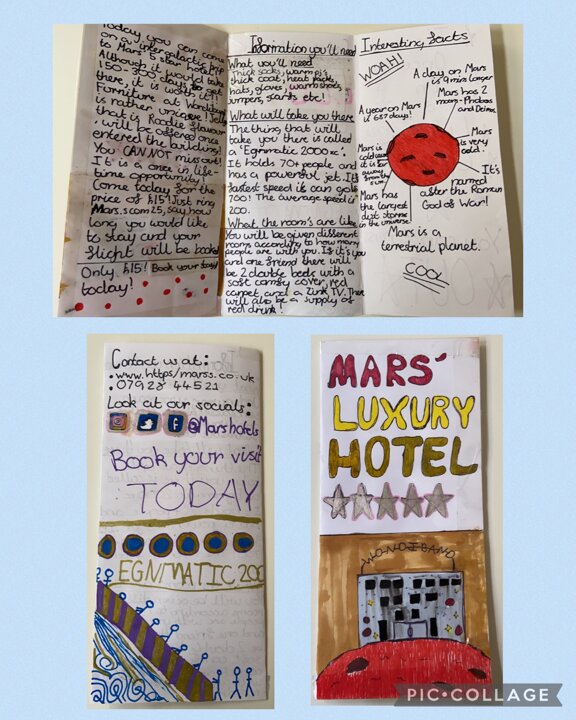 Today you can come
on a intergalactic trip
to Mars' 5 star hotel!
Although it would take
150-300 days to get
there, it is worth it!
Furniture at
is rather unique! Jelly
that is Radio flavour
will be offered once
entered the building!
You CANNOT miss out!
It is a once in life-
time opportunity!
Come today for the
price of £15! Just ring
Mars.scom25, say how
long you would like
to stay and your
flight will be booked!
Only £15! Book your stay
today!
Information you'll need
What you'll need
Thick socks, warm pj's,
thick coat, heat packs,
hats, gloves, warm shoes,
jumpers, scarfs etc!
What will take you there
The thing that will
take you there is called
a 'Egnimatic 2000
It holds 70+ people and
has a powerful jet. It's
fastest speed it can go is
700! The average speed is
200.
What the room's are like
You will be given different
rooms according to how many
people are with you. If it's you
and one friend there will
be 2 double beds with a
soft comfy cover, red
carpet and a Zink TV. There
will also be a supply of
red drink!
Interesting facts
WOAH!
A day on Mars
is 9 mins longer
Mars has 2
moons- Phobos
and Deimos.
A year on Mars
is 687 days!
Mars
is very
cold.
Mars is
cold because
it is far
away
from the
sun.
It's
named
after the Roman
God of War!
Mars has
the largest
dust storms
in the universe.
Mars is a
terrestrial planet.
COOL
Contact us at:
• www.https/marss.co.uk
• 07928 44521
Look at our socials:
@Marshotels
Book your visit
TODAY
EGNIMATIC 200
MARS'
LUXURY
HOTEL
PIC•COLLAGE